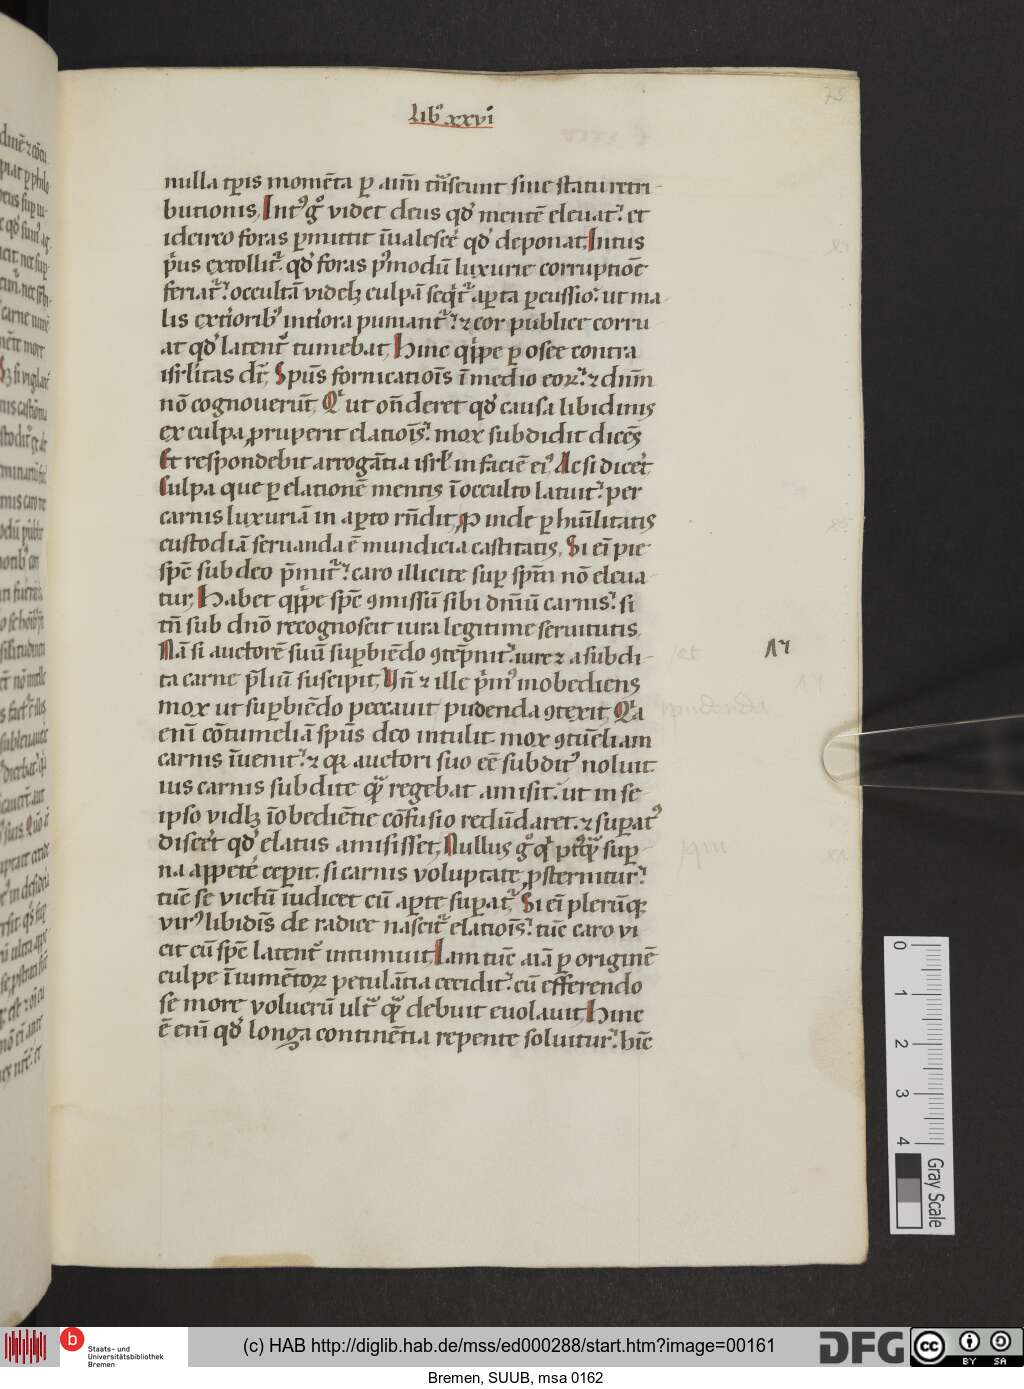 75
lib' xxvi
nulla tp̄ris momēta p̲ aīm trāseunt sine statu retri-
butionis. Int' gͦ videt deus qd̛ mentē eleuat᷑. et
ideirco foras p̲mittit īualescē qd̛ deponat. Intus
p̄us extollit᷑. qd̛ foras p'modū luxurie corruptiōe
feriat᷑. occultā videlꝫ culpā seq̄t᷑ ap̲ta p̲cussio. ut ma-
lis extiorib' intiora puniant᷑. ⁊ cor publice corru
at qd̛ latent᷑ tumebat. Hinc qͥppe p̲ osee contra
isrl'itas dr̄. Spūs fornicatiōis ī medio eoꝝ. ⁊ dnm̄
nō cognouerūt. Qͥ ut on̄deret qd̛ causa libidinis
ex culpa ꝓruperit elatiōis. mox subdidit dicēs
Et respondebit arrogātia isrl' in faciē ei'. Ac si dicet̄
Culpa que p̲ elationē mentis ī occulto latuit. per
carnis luxuriā in ap̲to rn̄dit. Proinde p̲ hūilitatis
custodiā seruanda ē mundicia castitatis. Si eī pie
spc̄ sub deo p̄mit᷑. caro illicite sup̲ spm̄ nō eleua
tur. Habet qͥppe spc̄ ꝯmissū sibi dn̄iū carnis. si
tn̄ sub dnō recognoscit iura legitime seruitutis.
Nā si auctorē suū sup̲biēdo ꝯtēpnit. iure ⁊ a subdi-
ta carne p̄liū suscipit. Vn̄ ⁊ ille p̄m' inobediens
mox ut sup̲biēdo peccauit pudenda ꝯtexit. Qͥa
enī cōtumeliā spūs deo intulit mox ꝯtūeliam
carnis īuenit. ⁊ qꝛ auctori suo eē subdit' noluit
ius carnis subdite qͣ regebat amisit. ut in se
ipso vidlꝫ īobediētie cōfusio redūdaret. ⁊ sup̲at'
discet̄ qd̛ elatus amisisset. Nullus gͦ qͥ ptͣqͣ sup̲-
na appetē cep̲it. si carnis voluptate ꝓsternitur.
tūc se victū iudicet cū ap̲te sup̲at᷑. Si eī plerūqꝫ
vir' libidīs de radice nascit᷑ elatiōis. tūc caro vi
cit cū spc̄ latent᷑ intumuit. Iam tūc aīa p̲ originē
culpe ī iumētoꝝ petulātia cecidit. cū efferendo
se more volucrū ult᷑ qͣ debuit euolauit. Hinc
ē enī qd̛ longa continētia repente soluitur. hīc
0
1
2
3
4
Gray Scale
b
Staats- und
Universitätsbibliothek
Bremen
(c) HAB http://diglib.hab.de/mss/ed000288/start.htm?image=00161
DFG
cc
BY SA
Bremen, SUUB, msa 0162